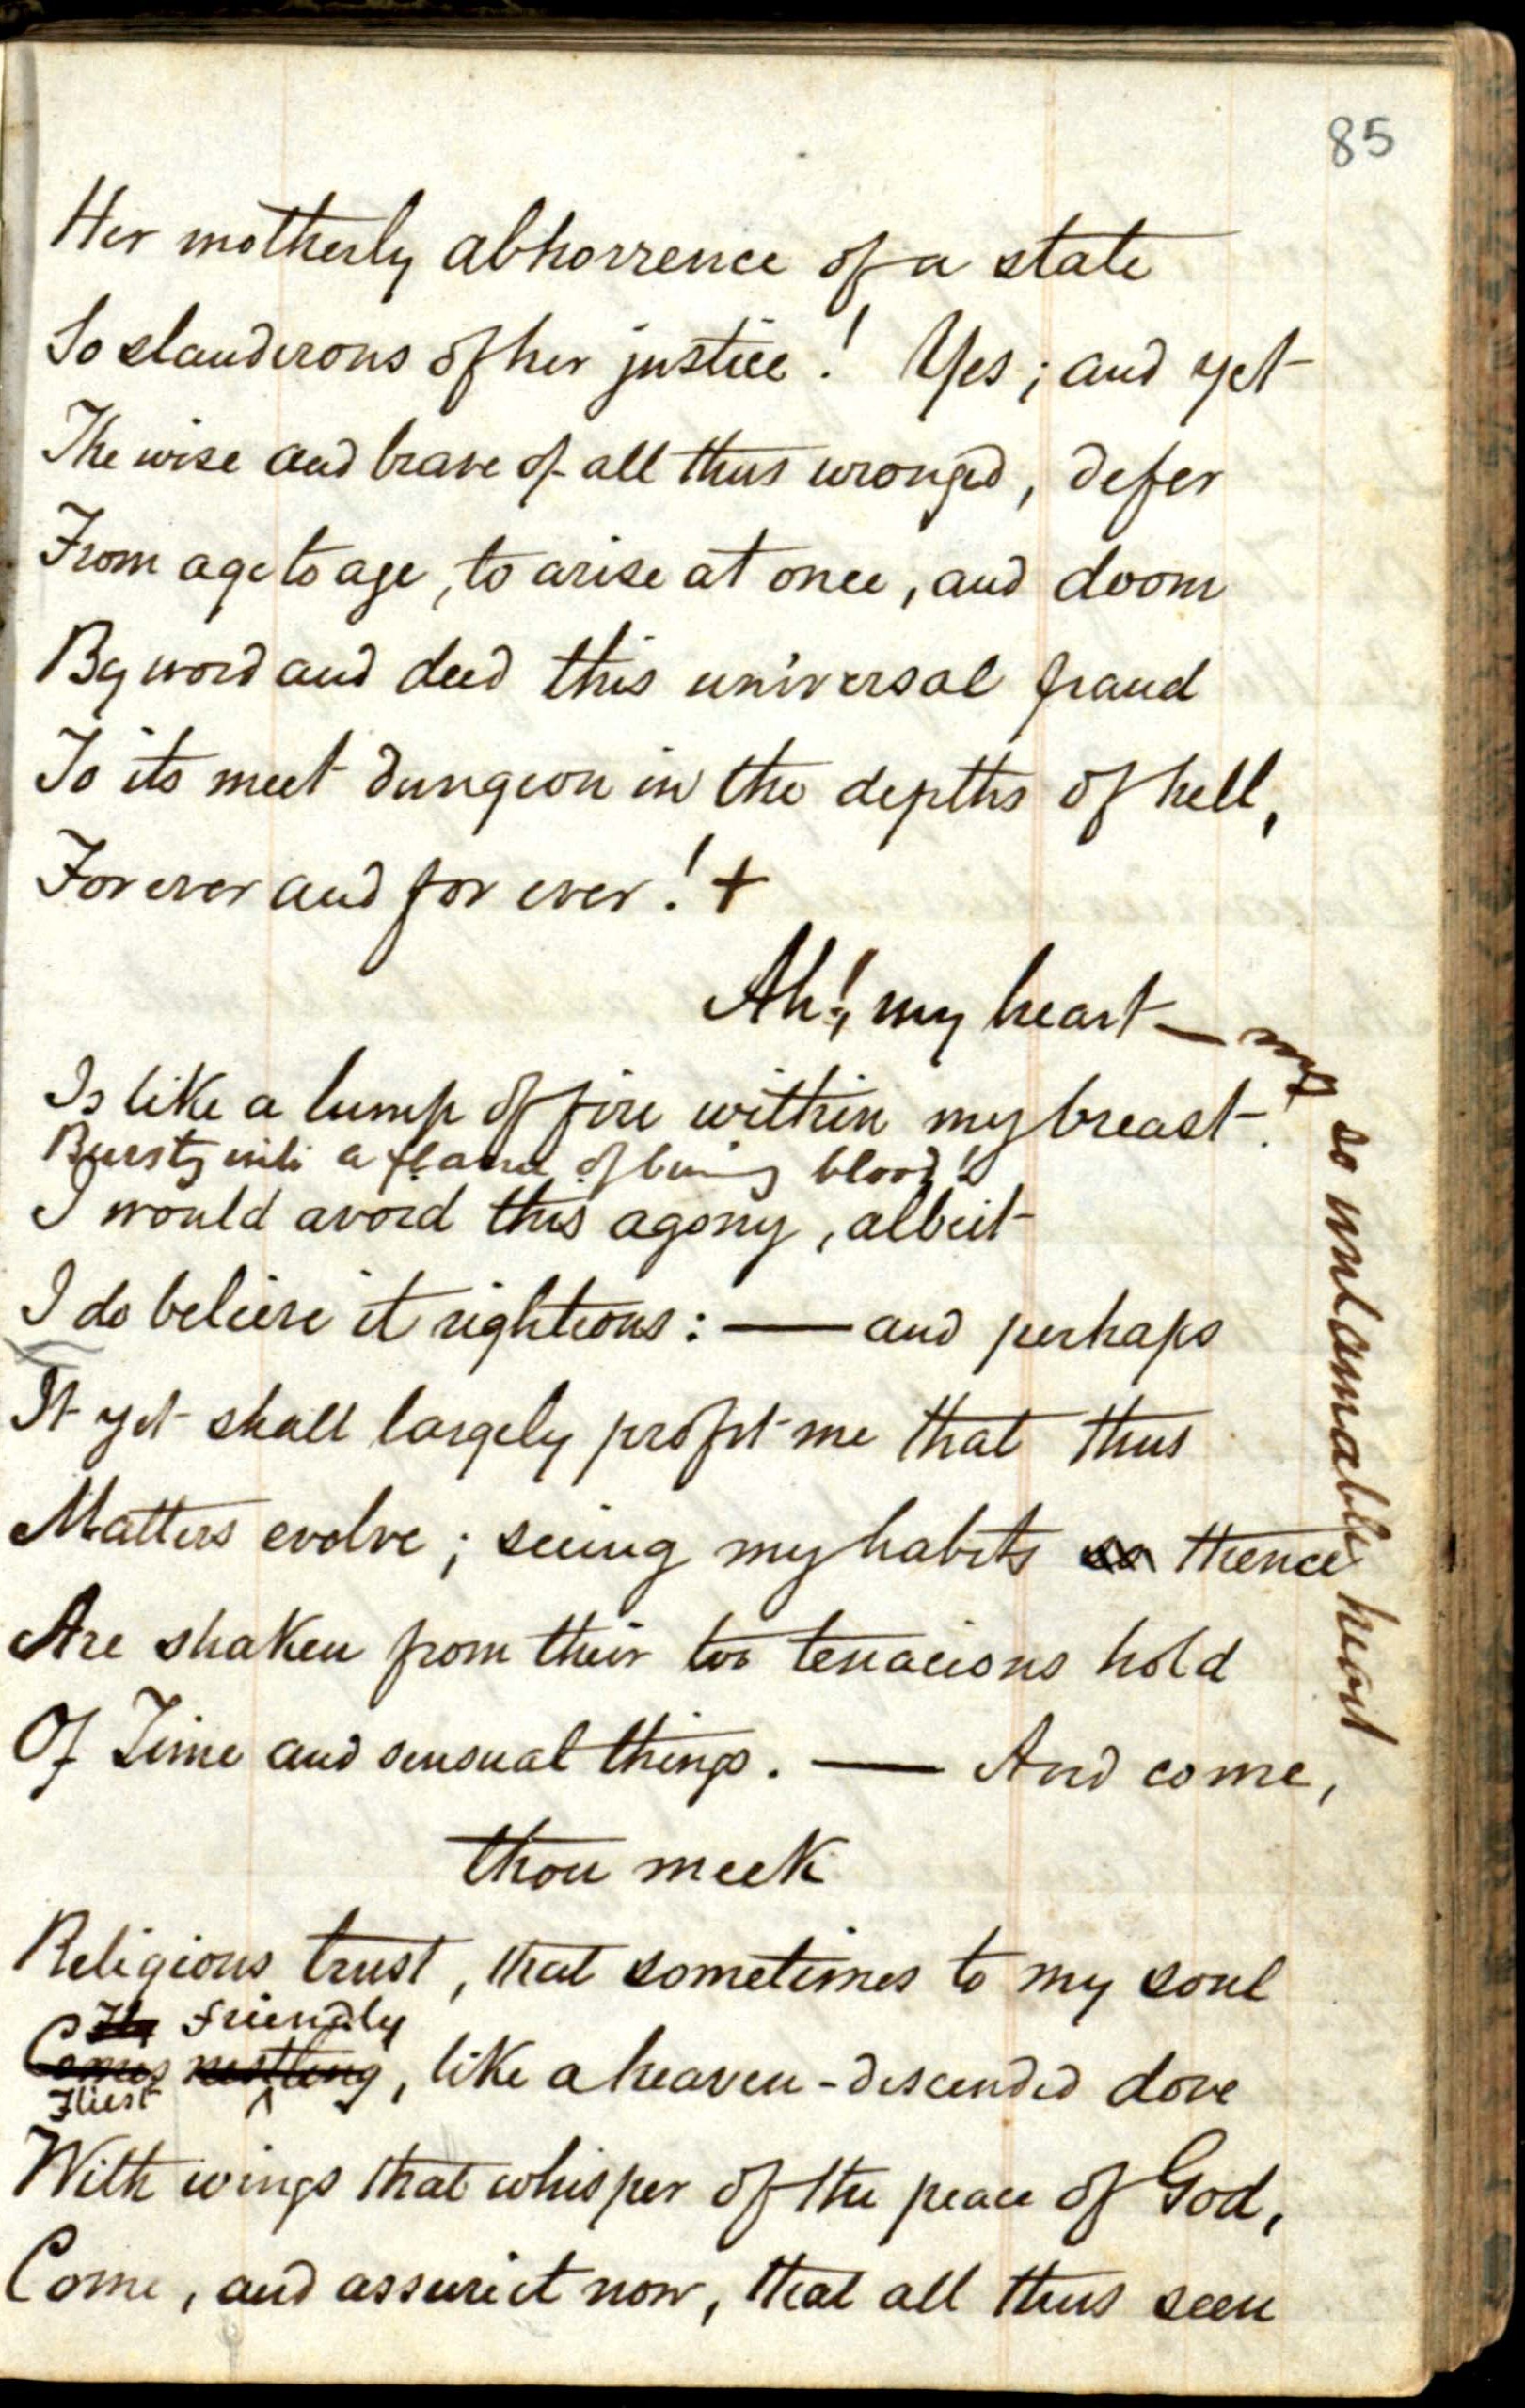 85
Her motherly abhorrence of a state
So slanderous of her justice! Yes; and yet
The wise and brave of all thus wronged, defer
From age to age, to arise at once, and doom
By word and deed this universal fraud
To its meet dungeon in the depths of hell,
For ever and for ever! +
Ah! my heart — my
so untamable heart
Is like a lump of fire within my breast!
Bursts into a flame of blood!
I would avoid this agony, albeit
I do believe it righteous: — and perhaps
It yet shall largely profit me that thus
Matters evolve; seeing my habits so thence
Are shaken from their too tenacious hold
Of Time and sensual things. — And come,
thou meek
Religious trust, that sometimes to my soul
friendly
Comes nestling, like a heaven-descended dove
Fliest
With wings that whisper of the peace of God,
Come, and assure it now, that all thus seen